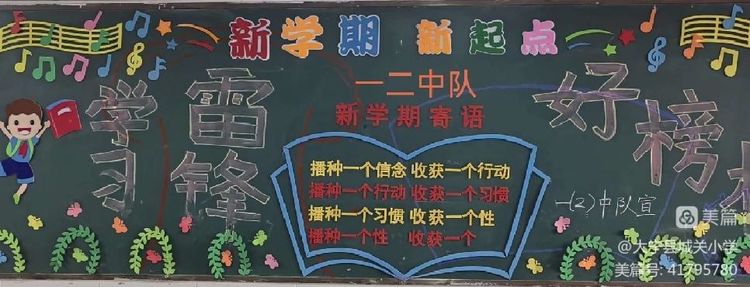 新学期 新起点
一二中队
新学期寄语
学习
雷锋
好榜
播种一个信念 收获一个行动
播种一个行动 收获一个习惯
播种一个习惯 收获一个性
播种一个性 收获一个
一(2)中队宣
美篇
@大宁县城关小学
美篇号: 41795780